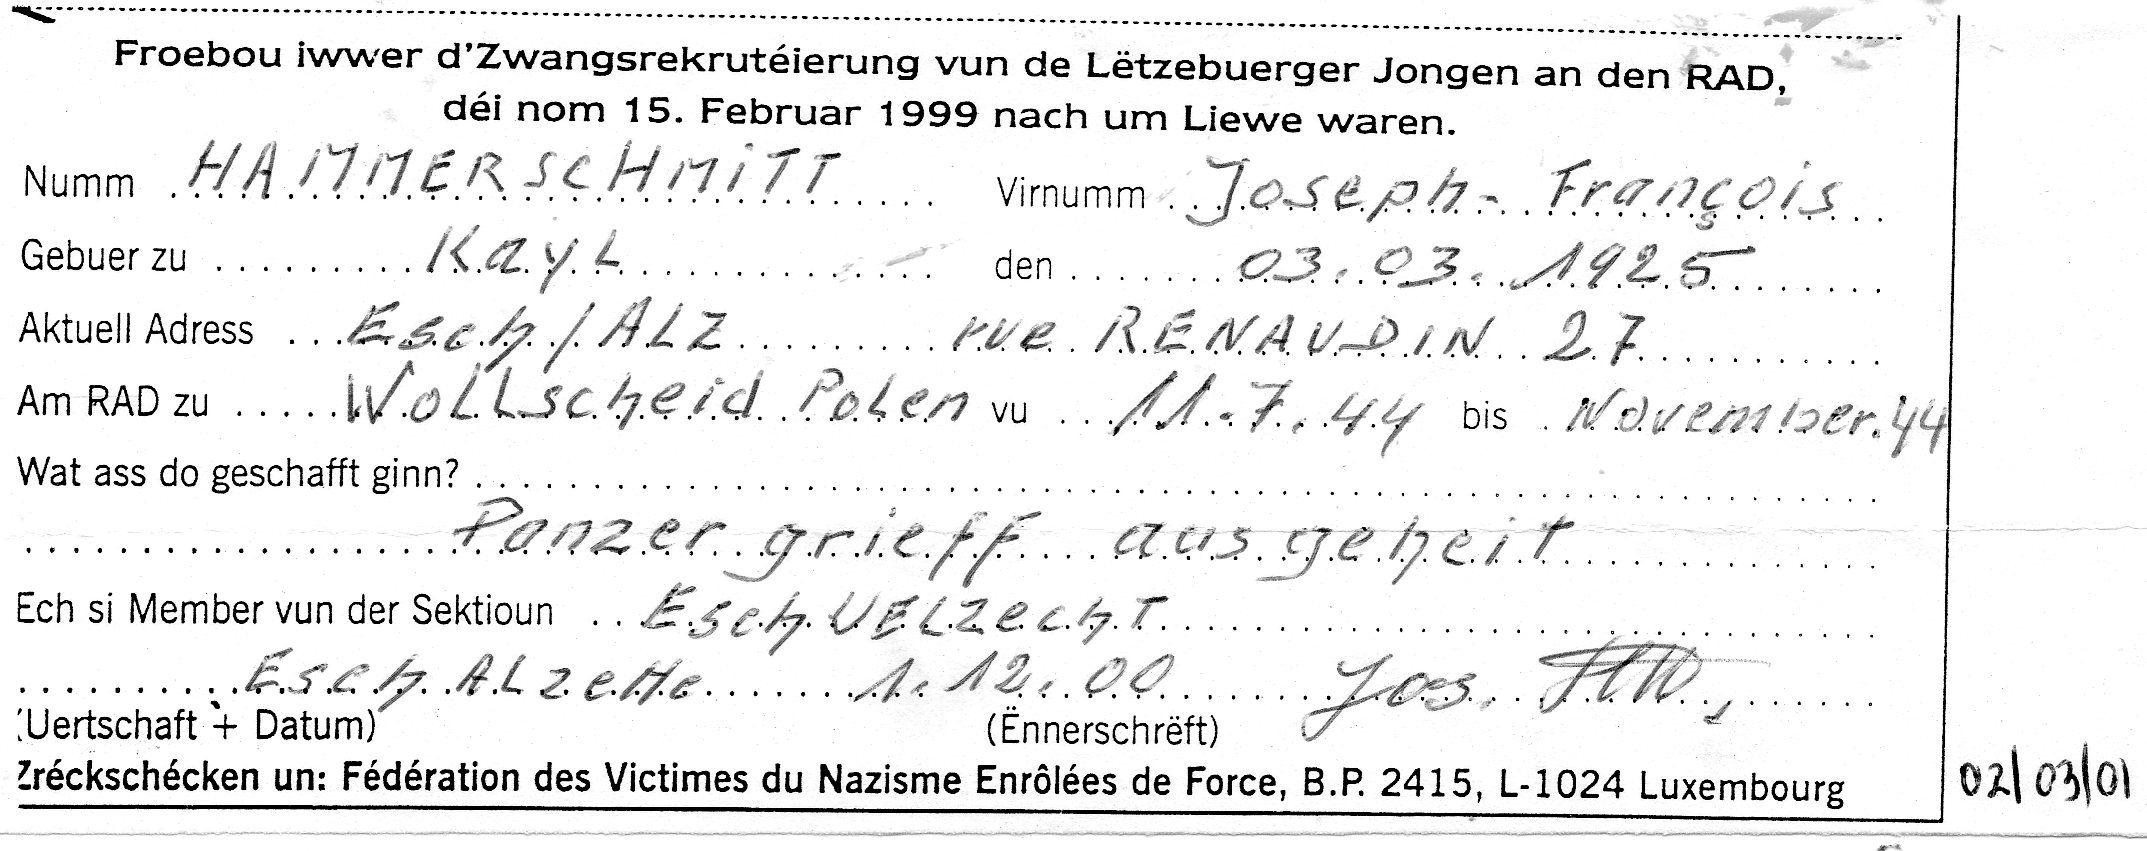 Froebou iwwer d'Zwangsrekrutéierung vun de Lëtzebuerger Jongen an den RAD,
déi nom 15. Februar 1999 nach um Liewe waren.
Numm HAMMERSCHMiTT Virnumm Joseph-François
Gebuer zu KayL den 03.03.1925
Aktuell Adress Esch/ALZ rue RENAUDIN 27
Am RAD zu WoLLscheid PoLen vu 11.7.44 bis November.44
Wat ass do geschafft ginn?
Panzergrieff ausgeheit
Ech si Member vun der Sektioun Esch UELZechT
Esch ALzette 1.12.00 Jos.
(Uertschaft + Datum) (Ënnerschrëft)
Zréckschécken un: Fédération des Victimes du Nazisme Enrôlées de Force, B.P. 2415, L-1024 Luxembourg
02/03/01